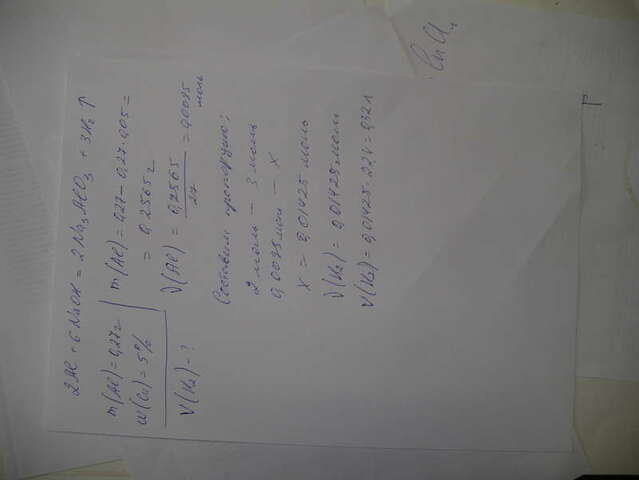 2Al + 6NaOH = 2Na₃AlO₃ + 3H₂ ↑
m(Al) = 0,27г
w(Cu) = 5%
V(H₂) - ?
m(Al) = 0,27 - 0,27·0,05 =
= 0,2565г
ν(Al) = 0,2565/27 = 0,0095 моль
Составим пропорцию:
2 моль - 3 моль
0,0095 мол - x
x = 0,01425 моль
ν(H₂) = 0,01425 моль
V(H₂) = 0,01425·22,4 = 0,32л